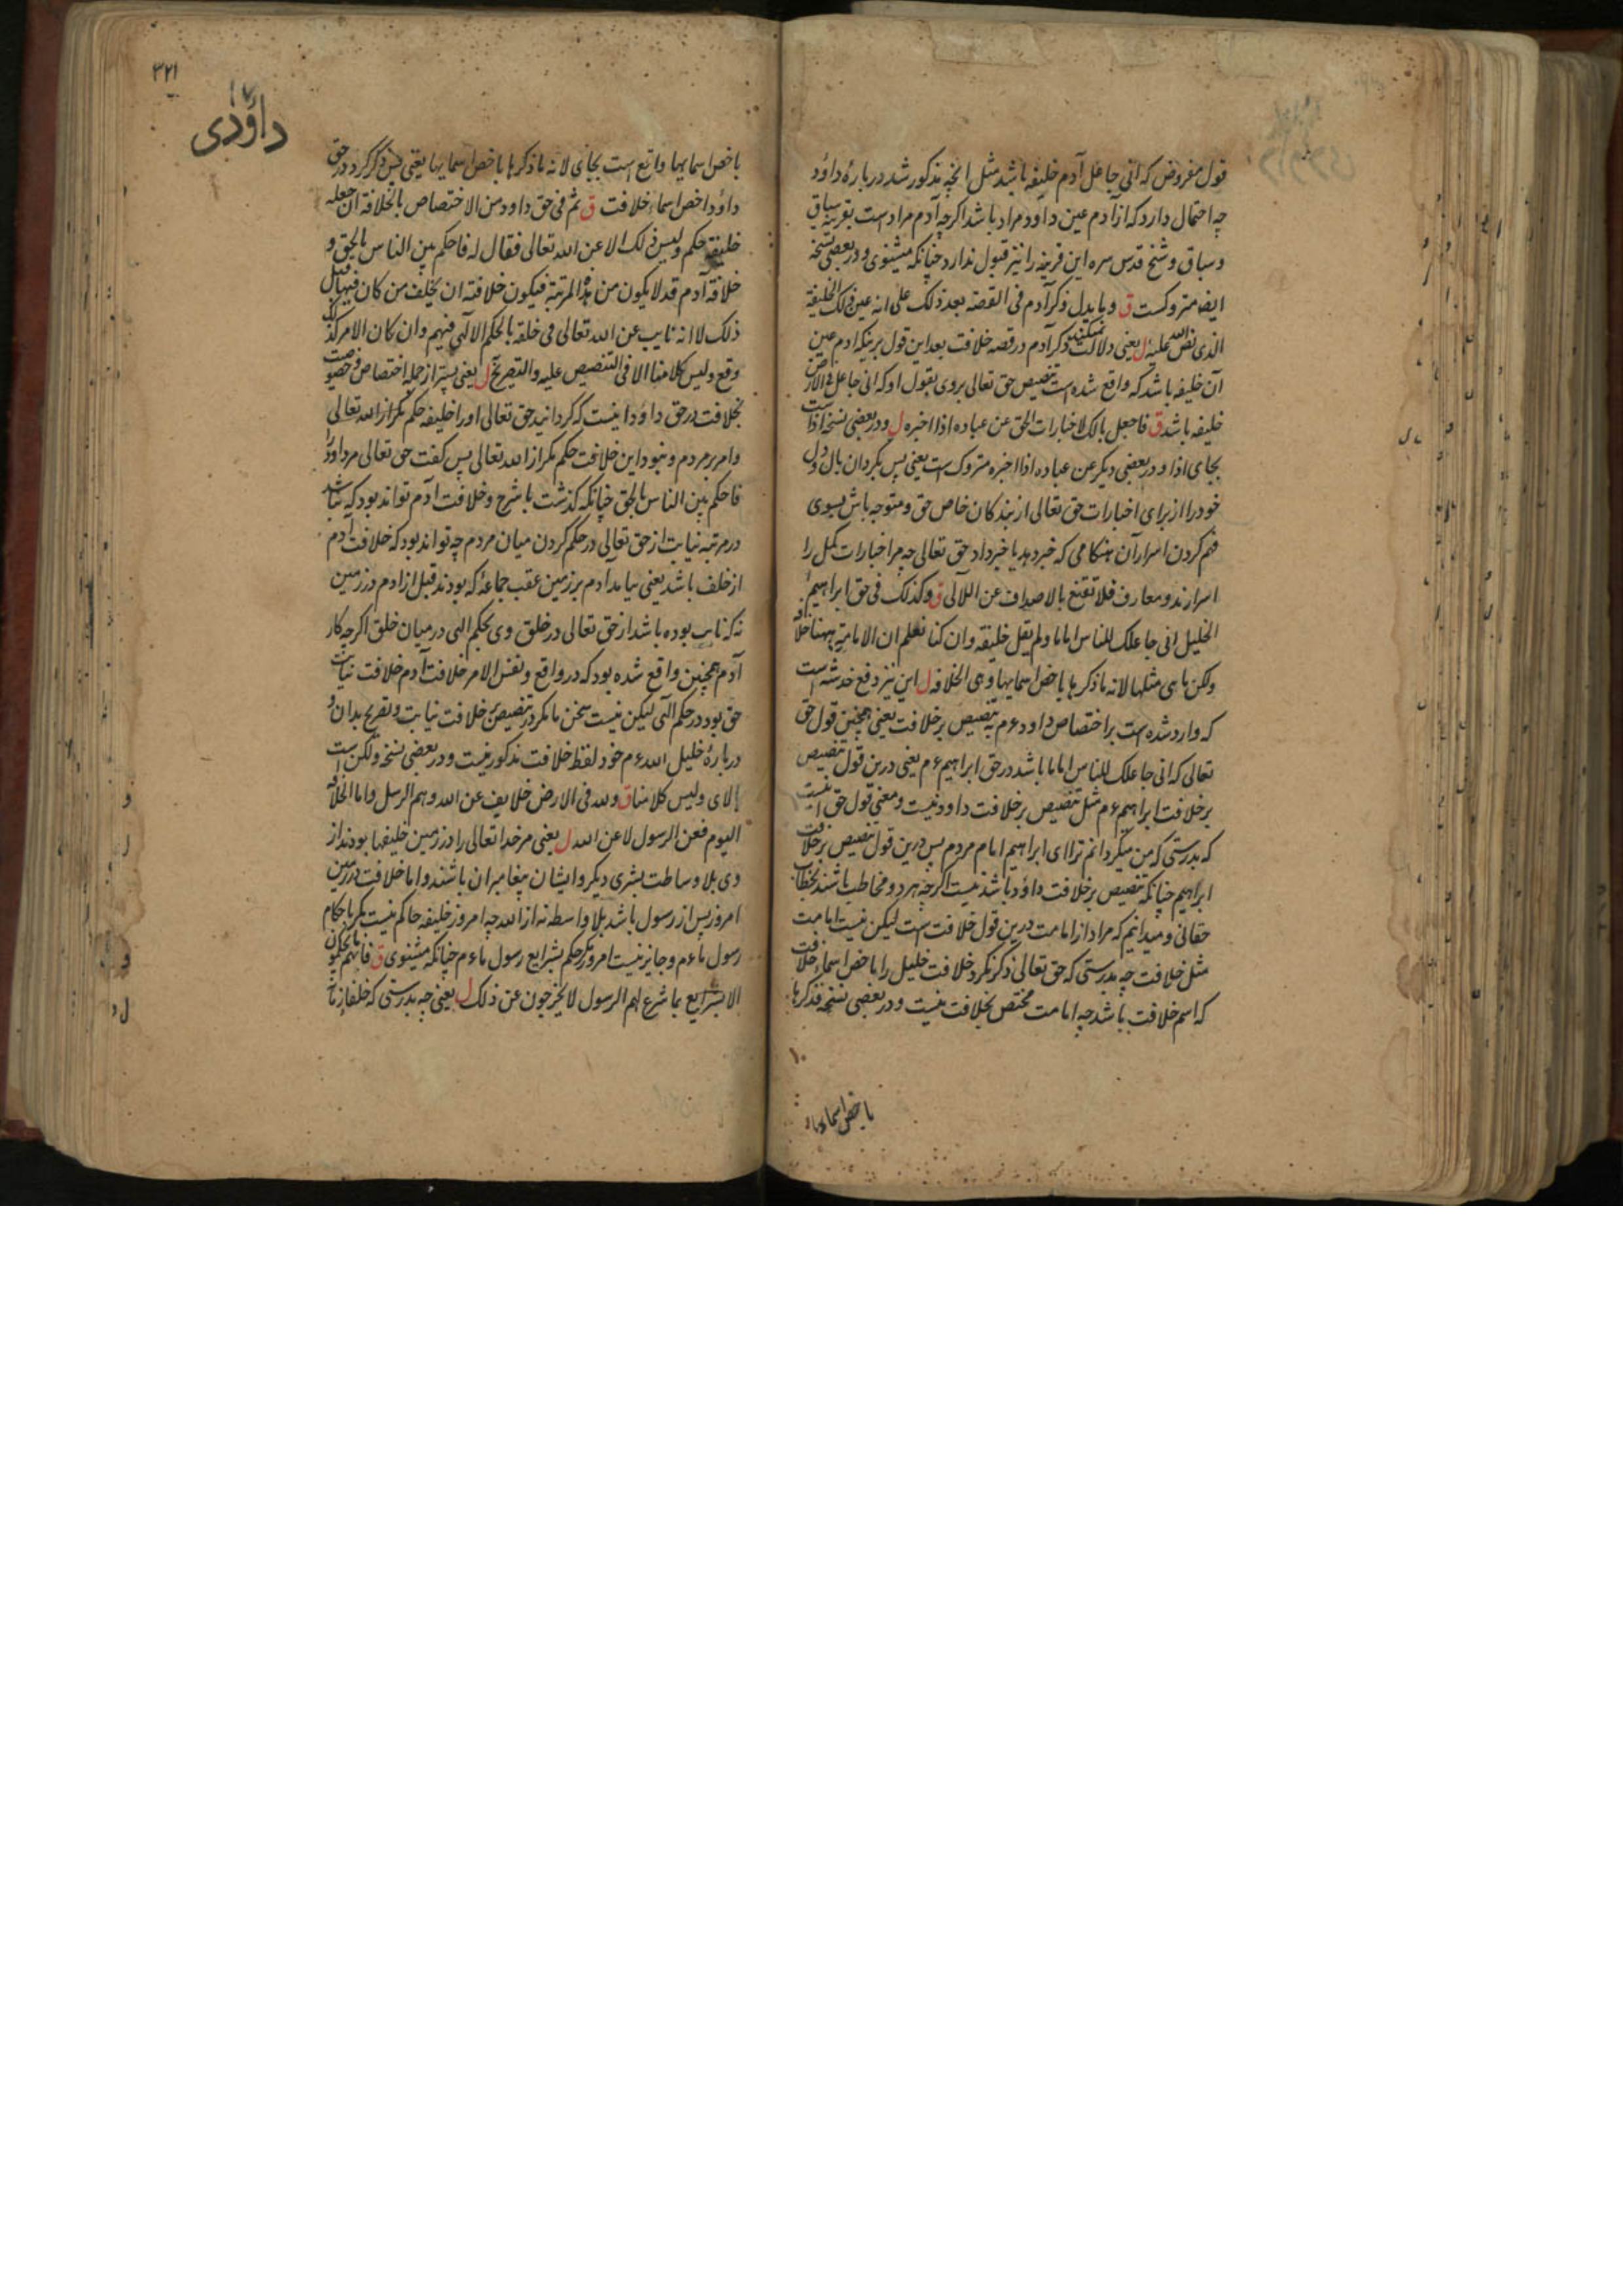 قول مفروض که انی جاعل آدم خلیفه باشد مثل انچه مذکور شد در بارهٔ داود
چه احتمال دارد که از آدم عین داود مراد باشد اکرچه آدم مراد است بقرینه سباق
و سیاق و شیخ قدس سره این قرینه را نیز قبول ندارد چنانکه میشنوی و در بعضی نسخه
ایضا متروکست ق و ما یدل ذکر آدم فی القصة بعد ذلک علی انه عین ذلک الخلیفة
الذی نص الله علیه ل یعنی دلالت نمیکند ذکر آدم در قصه خلافت بعد این قول برینکه آدم عین
آن خلیفه باشد که واقع شده است تنصیص حق تعالی بروی بقول او که انی جاعل فی الارض
خلیفه باشد ق فاجعل بالک لاخبارات الحق عن عباده اذا اخبر ل و در بعضی نسخه اذا ست
بجای اذا و در بعضی دیکر عن عباده اذا اخبره متروک است یعنی پس بکردان بال و دل
خود را از برای اخبارات حق تعالی از بندکان خاص حق و متوجه باش بسوی
فهم کردن اسرار آن هنکامی که خبر دهد یا خبر داد حق تعالی چه مر اخبارات کمل را
اسرارند و معارف فلا تقنع بالاصداف عن اللآلی ق و کذلک فی حق ابراهیم
الخلیل انی جاعلک للناس اماما و لم یقل خلیفة و ان کنا نعلم ان الامامة ههنا خلافة
ولکن ما هی مثلها لانه ما ذکرها باخص اسمایها و هی الخلافة ل این نیز دفع خدشه است
که وارد شده است بر اختصاص داود ع م به تنصیص بر خلافت یعنی همچنین قول حق
تعالی که انی جاعلک للناس اماما باشد در حق ابراهیم ع م یعنی درین قول تنصیص
بر خلافت ابراهیم ع م مثل تنصیص بر خلافت داود نیست و معنی قول حق اینست
که بدرستی که من میکردانم ترا ای ابراهیم امام مردم پس درین قول تنصیص بر خلافت
ابراهیم چنانکه تنصیص بر خلافت داؤد باشد نیست اکرچه هر دو مخاطب باشند بخطاب
حقانی و میدانیم که مراد از امامت درین قول خلافت است لیکن نیست امامت
مثل خلافت چه بدرستی که حق تعالی ذکر نکرد خلافت خلیل را باخص اسماء خلافت
که اسم خلافت باشد چه امامت مختص بخلافت نیست و در بعضی نسخه فذکرها
۱۰
باخص اسمایها
۳۲۱
۱۷
داؤدی
باخص اسمایها واقع است بجای لانه ما ذکرها باخص اسمایها یعنی پس ذکر کرد در حق
داؤد اخص اسماء خلافت ق ثم فی حق داود من الاختصاص بالخلافة ان جعله
خلیفة حکم و لیس ذلک الا عن الله تعالی فقال له فاحکم بین الناس بالحق و
خلافة آدم قد لا یکون من هذه المرتبة فیکون خلافته ان یخلف من کان فیها قبل
ذلک لا انه نایب عن الله تعالی فی خلقه بالحکم الالهی فیهم و ان کان الامر کذلک
وقع و لیس کلامنا الا فی التنصیص علیه و التصریح به ل یعنی پستر از جمله اختصاص و خصوصیت
بخلافت در حق داؤد اینست که کردانید حق تعالی او را خلیفه حکم مکر از الله تعالی
و امر بر مردم و نبود این خلافت حکم مکر از الله تعالی پس کفت حق تعالی مر داؤد را
فاحکم بین الناس بالحق چنانکه کذشت با شرح و خلافت آدم تواند بود که نباشد
در مرتبه نیابت از حق تعالی در حکم کردن میان مردم چه تواند بود که خلافت آدم
از خلف باشد یعنی بیامد آدم بر زمین عقب جماعهٔ که بودند قبل از آدم در زمین
نه که نایب بوده باشد از حق تعالی در خلق وی بحکم الهی در میان خلق اکرچه کار
آدم همچنین واقع شده بود که در واقع و نفس الامر خلافت آدم خلافت نیابت
حق بود در حکم الهی لیکن نیست سخن ما مکر در تنصیص بر خلافت نیابت و تصریح بدان و
در بارهٔ خلیل الله ع م خود لفظ خلافت مذکور نیست و در بعضی نسخه ولکن است
ای و لیس کلامنا ق و لله فی الارض خلایف عن الله و هم الرسل و اما الخلافة
الیوم فعن الرسول لا عن الله ل یعنی مر خدا تعالی را در زمین خلیفها بودند از
وی بلا وساطت بشری دیکر و ایشان پیغامبران باشند و اما خلافت در زمین
امروز پس از رسول باشد بلا واسطه نه از الله چه امروز خلیفه حاکم نیست مکر باحکام
رسول ما ع م و جایز نیست امروز مکر حکم بشرایع رسول ما ع م چنانکه میشنوی ق فانهم ما یحکمون
الا بشرایع بما شرع لهم الرسول لا یخرجون عن ذلک ل یعنی چه بدرستی که خلفا